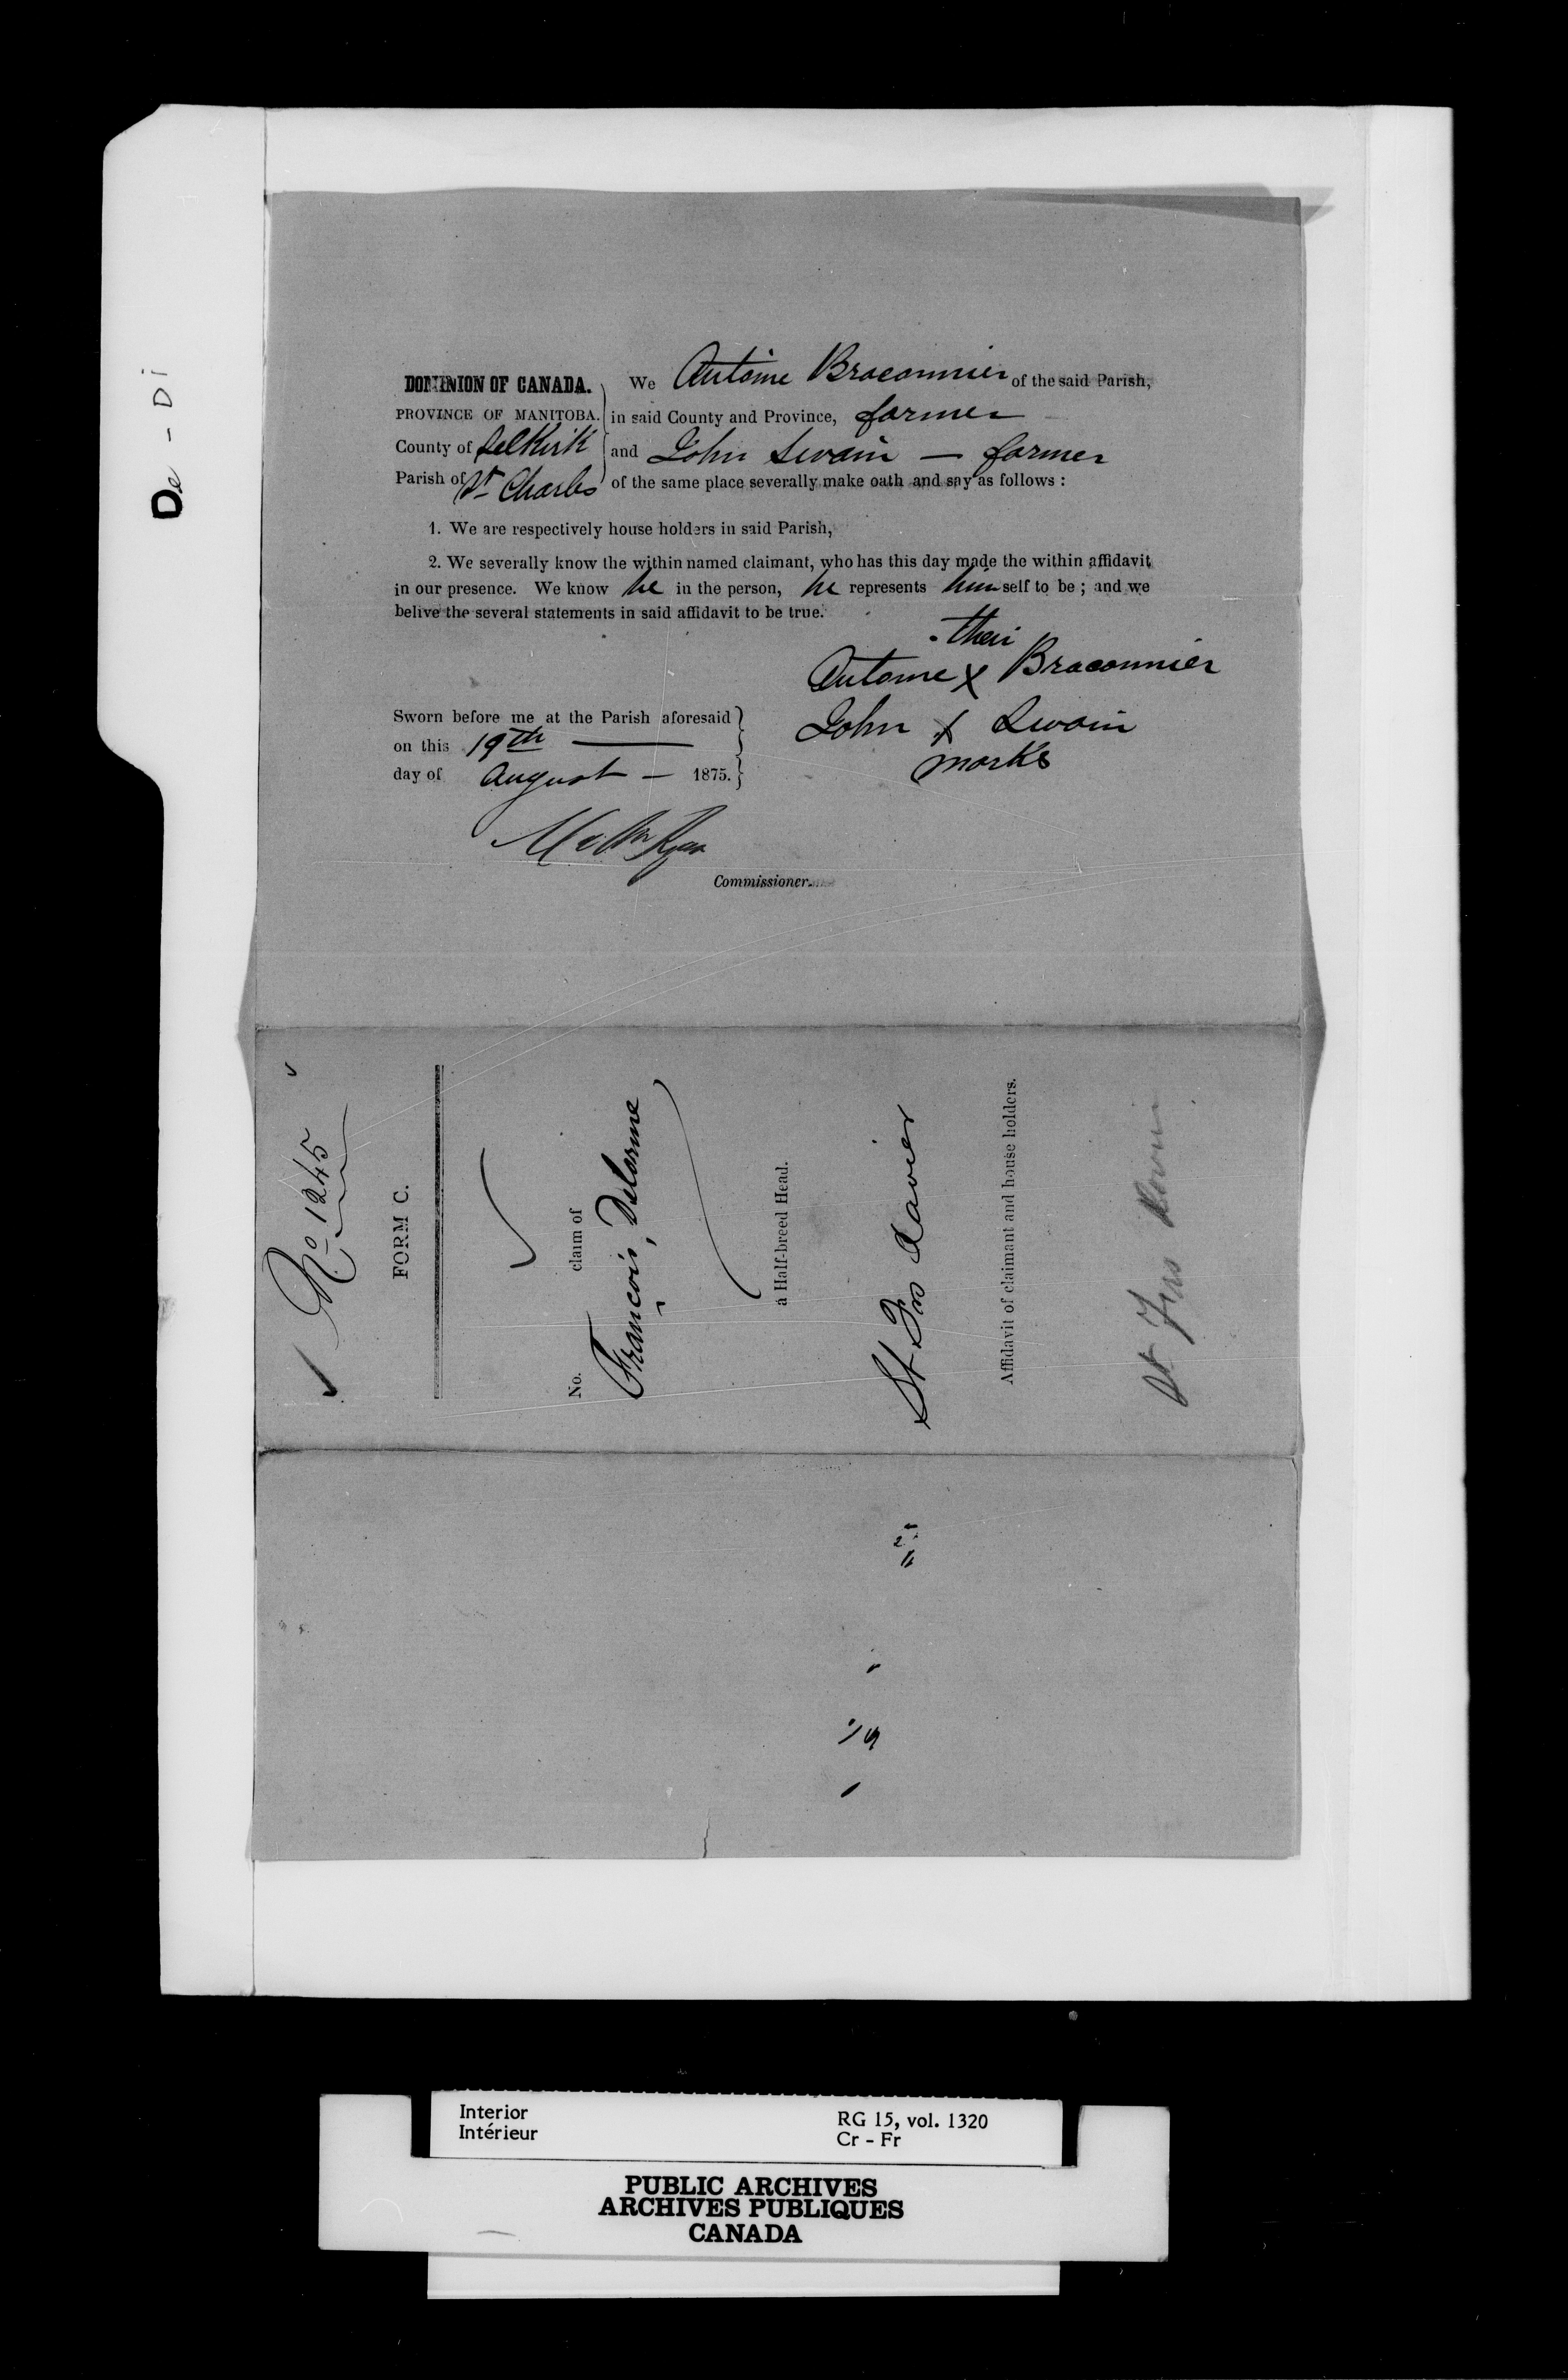 De - Di
DOMINION OF CANADA.
PROVINCE OF MANITOBA.
County of Selkirk
Parish of St Charles
We Antoine Braconnier of the said Parish,
in said County and Province, farmer
and John Swain — farmer
of the same place severally make oath and say as follows :
1. We are respectively house holders in said Parish,
2. We severally know the within named claimant, who has this day made the within affidavit
in our presence. We know he in the person, he represents himself to be ; and we
belive the several statements in said affidavit to be true.
their
Antoine X Braconnier
John X Swain
marks
Sworn before me at the Parish aforesaid
on this 19th —
day of August — 1875.
Ryan
Commissioner.
No 1245
FORM C.
No. claim of
François Delorme
a Half-breed Head.
St Frs Xavier
Affidavit of claimant and house holders.
St Frs Xavier
Interior
Intérieur
RG 15, vol. 1320
Cr - Fr
PUBLIC ARCHIVES
ARCHIVES PUBLIQUES
CANADA